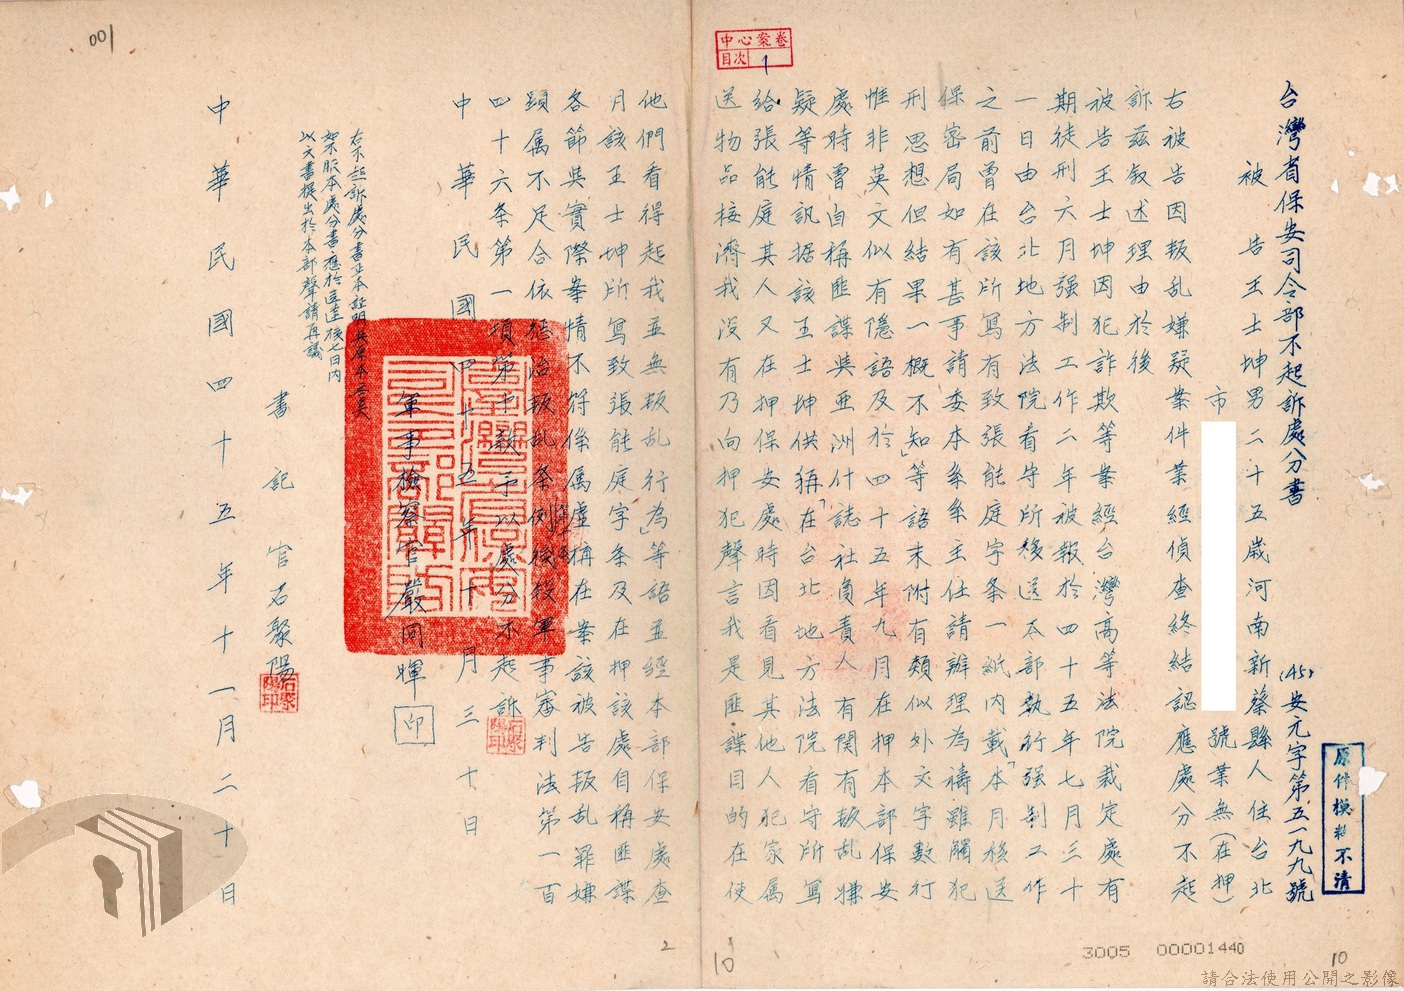 中心案卷
目次 1
台灣省保安司令部不起訴處分書
(45)安元字第五一九九號
被告王士坤男二十五歲河南新蔡縣人住台北
市
號業無(在押)
右被告因叛乱嫌疑案件業經偵查終結認應處分不起
訴兹叙述理由於後
被告王士坤因犯詐欺等案經台灣高等法院裁定處有
期徒刑六月强制工作二年被報於四十五年七月三十
一日由台北地方法院看守所移送本部執行强制工作
之前曾在該所寫有致張能庭字条一紙內載「本月移送
保密局如有甚事請委本系系主任請辦理為禱雖觸犯
刑思想但結果一概不知」等語末附有類似外文字數行
惟非英文似有隱語及於四十五年九月在押本部保安
處時曾自稱匪諜吳亚洲什誌社負責人有関有叛乱嫌
疑等情訊据該王士坤供稱「在台北地方法院看守所寫
給張能庭其人又在押保安處時因看見其他人犯家属
送物品接濟我没有乃向押犯聲言我是匪諜目的在使
他們看得起我並無叛乱行為」等語並經本部保安處查
月該王士坤所寫致張能庭字条及在押該處自稱匪諜
各節與實際案情不符係属虛構在案該被告叛乱罪嫌
顕属不足合依惩治叛乱条例後段軍事審判法第一百
四十六条第一項第十款予以處分不起訴
中華民國四十五年十月三十日
軍事檢察官嚴同暉
印
右不起訴處分書正本証明與原本無異
如不服本處分書應於送達後七日內
以文書提出於本部聲請再議
書記官石聚陽
石聚陽印
石聚陽印
中華民國四十五年十一月二十日
原件模糊不清
001
2
10
10
3005 00001440
請合法使用公開之影像